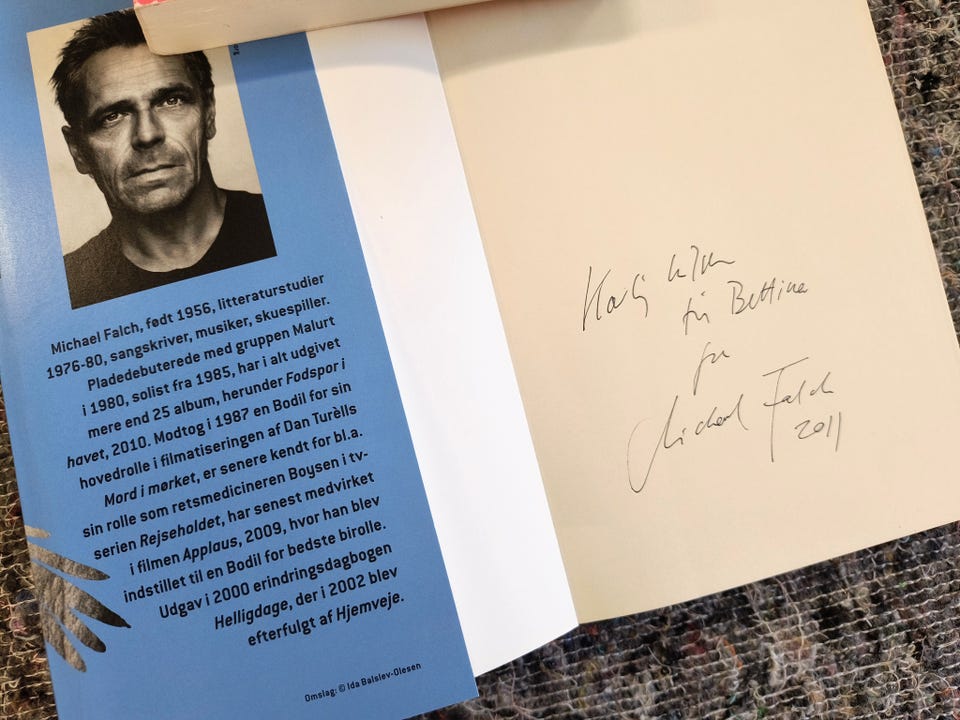 Michael Falch, født 1956, litteraturstudier
1976-80, sangskriver, musiker, skuespiller.
Pladedebuterede med gruppen Malurt
i 1980, solist fra 1985, har i alt udgivet
mere end 25 album, herunder Fodspor i
havet, 2010. Modtog i 1987 en Bodil for sin
hovedrolle i filmatiseringen af Dan Turèlls
Mord i mørket, er senere kendt for bl.a.
sin rolle som retsmedicineren Boysen i tv-
serien Rejseholdet, har senest medvirket
i filmen Applaus, 2009, hvor han blev
indstillet til en Bodil for bedste birolle.
Udgav i 2000 erindringsdagbogen
Helligdage, der i 2002 blev
efterfulgt af Hjemveje.
Omslag: © Ida Balslev-Olesen
Bettina
Michael Falch
2011